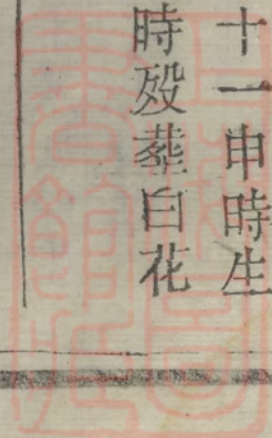 十一申時生
時殁塟白花